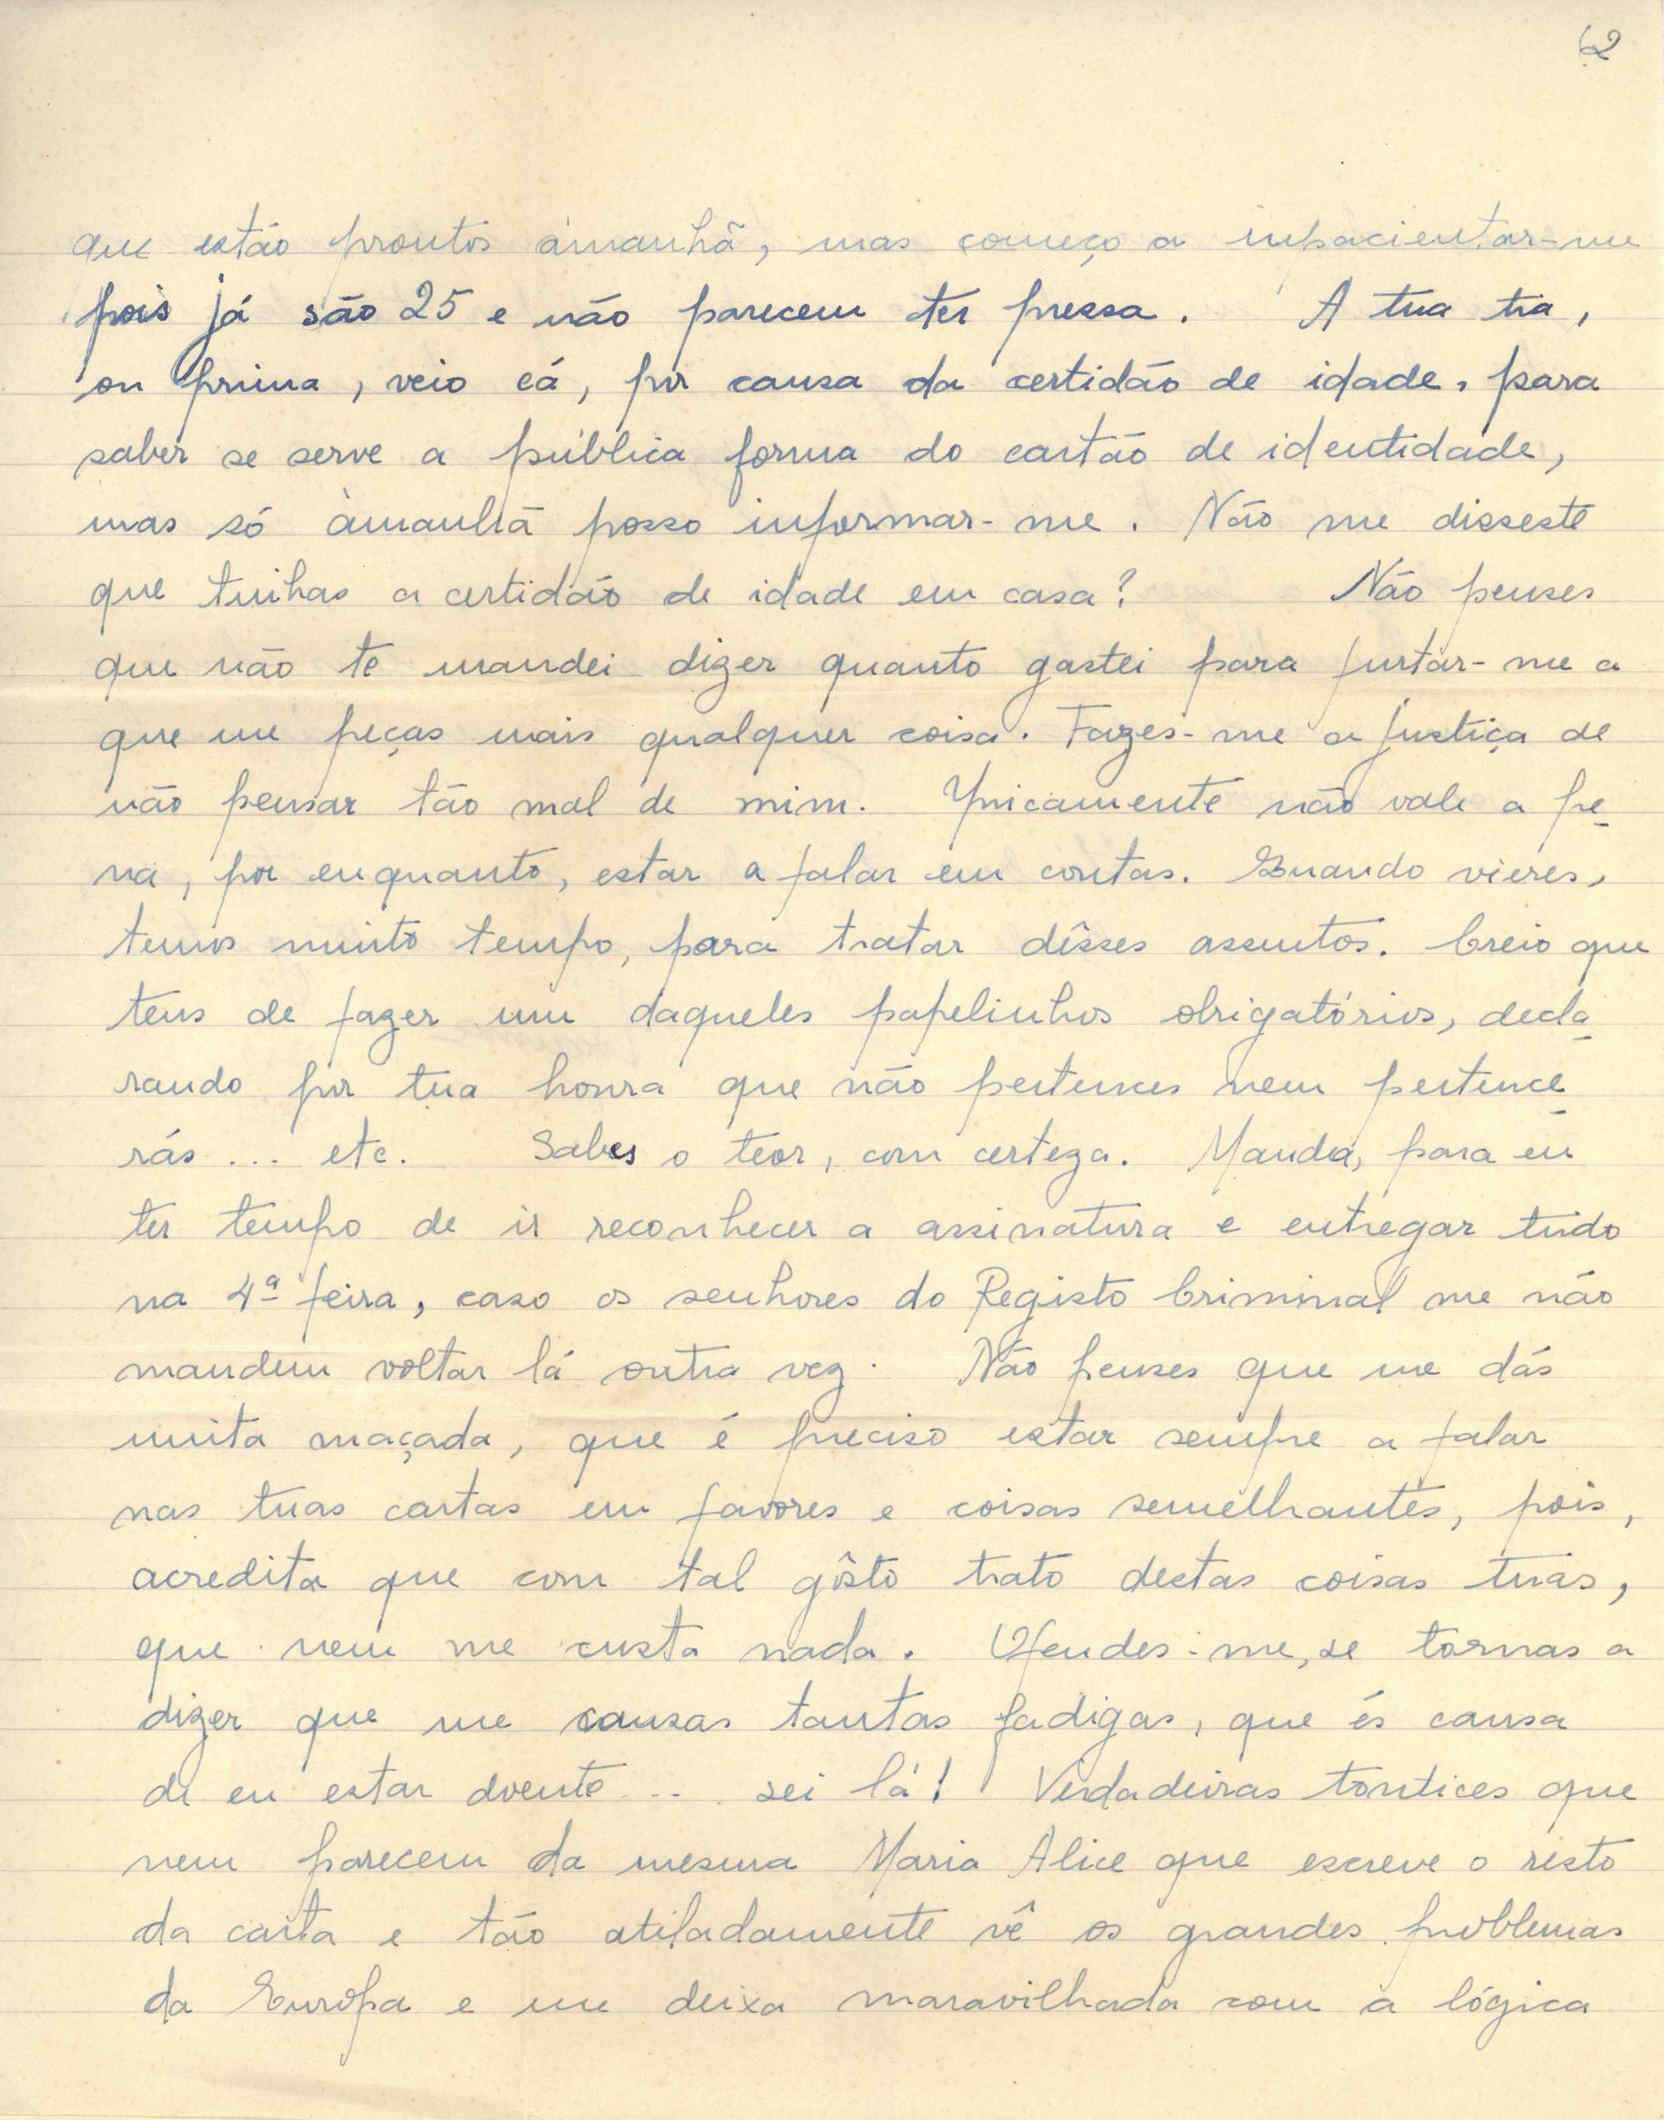 62
que estão prontos àmanhã, mas começo a impacientar-me
pois já são 25 e não parecem ter pressa. A tua tia,
ou prima, veio cá, por causa da certidão de idade, para
saber se serve a pública forma do cartão de identidade,
mas só àmanhã posso informar-me. Não me disseste
que tinhas a certidão de idade em casa? Não penses
que não te mandei dizer quanto gastei para furtar-me a
que me peças mais qualquer coisa. Fazes-me a justiça de
não pensar tão mal de mim. Unicamente não vale a pe-
na, por enquanto, estar a falar em contas. Quando vieres,
temos muito tempo, para tratar dêsses assuntos. Creio que
tens de fazer um daqueles papelinhos obrigatórios, decla-
rando por tua honra que não pertences nem pertence-
rás... etc. Sabes o teor, com certeza. Manda, para eu
ter tempo de ir reconhecer a assinatura e entregar tudo
na 4ª feira, caso os senhores do Registo Criminal me não
mandem voltar lá outra vez. Não penses que me dás
muita maçada, que é preciso estar sempre a falar
nas tuas cartas em favores e coisas semelhantes, pois,
acredita que com tal gôsto trato destas coisas tuas,
que nem me custa nada. Ofendes-me, se tornas a
dizer que me causas tantas fadigas, que és causa
de eu estar doente... sei lá! Verdadeiras tontices que
nem parecem da mesma Maria Alice que escreve o resto
da carta e tão atiladamente vê os grandes problemas
da Europa e me deixa maravilhada com a lógica